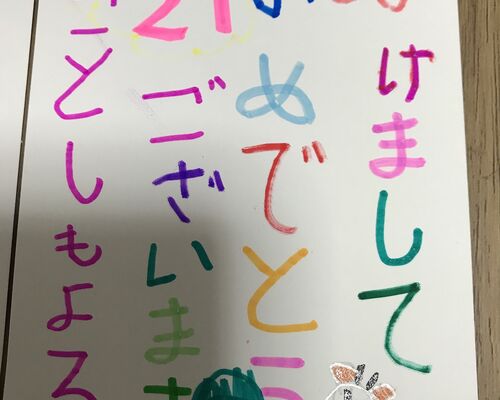 あけまして
おめでとう
21
ございます
ことしもよろ